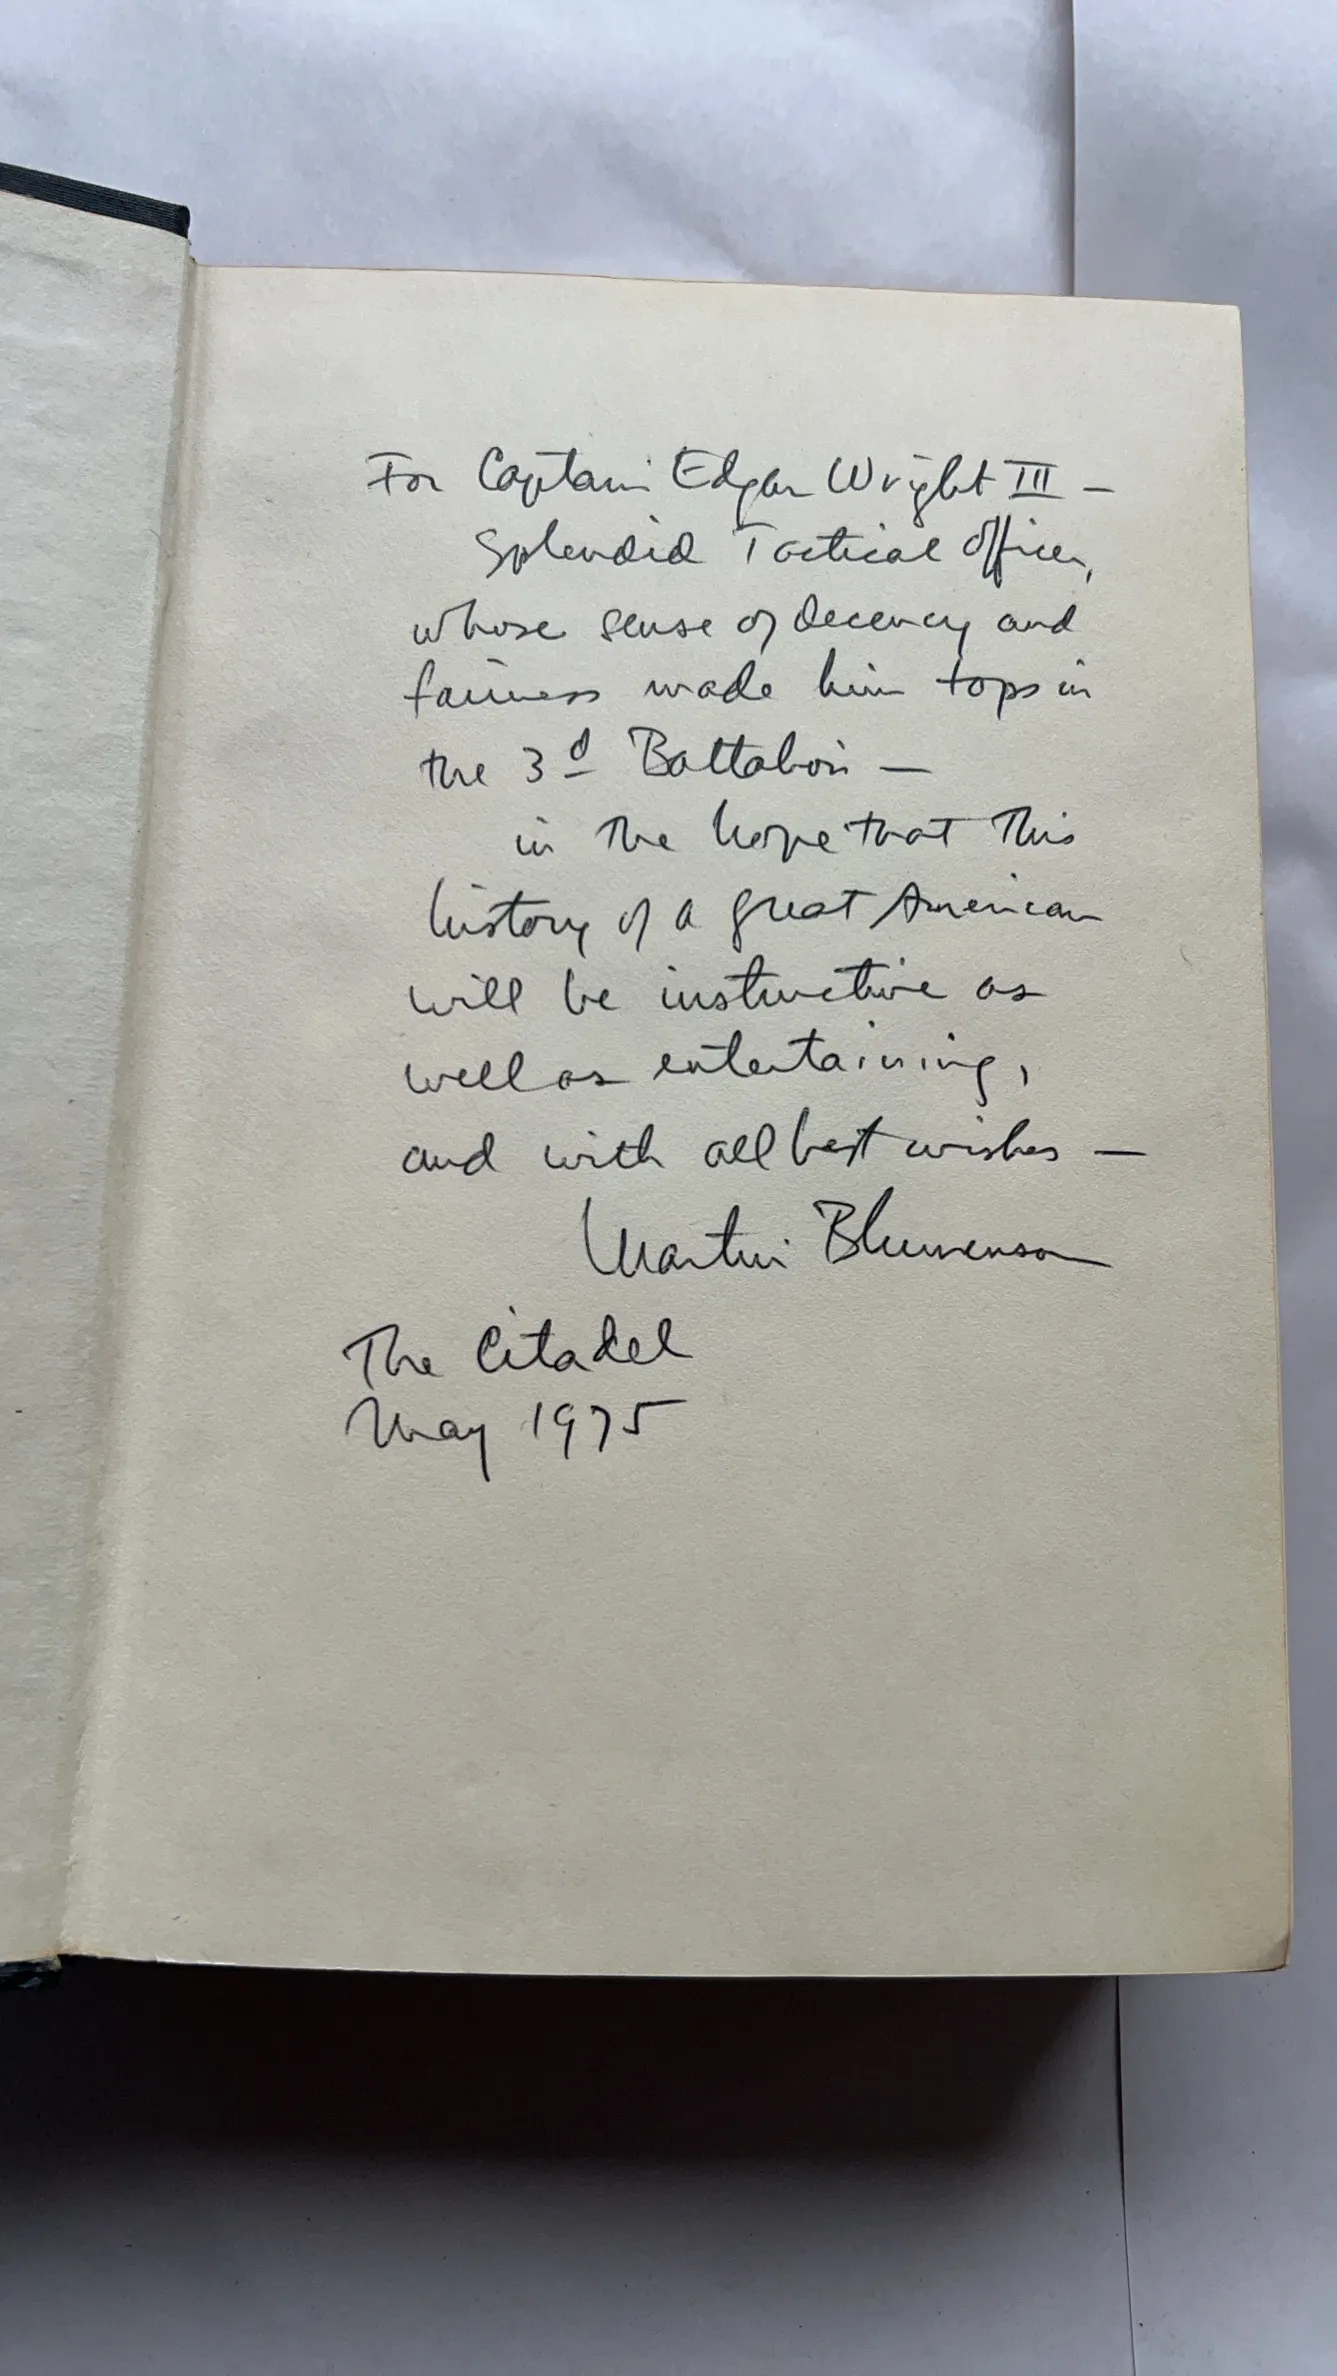 For Captain Edgar Wright III —
Splendid Tactical Officer,
whose sense of decency and
fairness made him tops in
the 3d Battalion —
in the hope that this
history of a great American
will be instructive as
well as entertaining,
and with all best wishes —
Martin Blumenson
The Citadel
May 1975